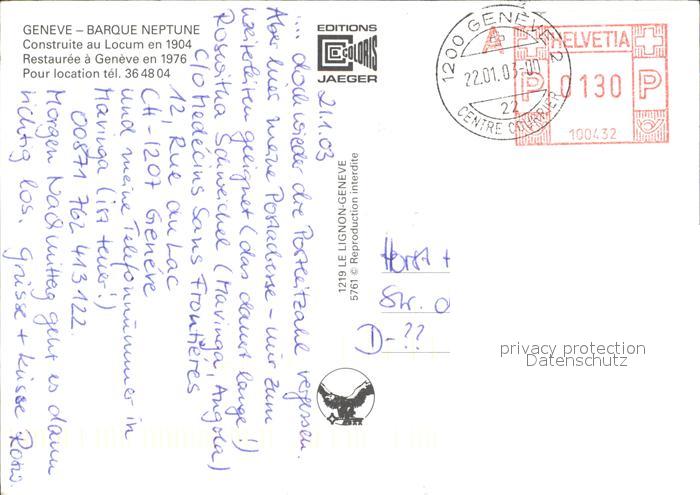 GENEVE – BARQUE NEPTUNE
Construite au Locum en 1904
Restaurée à Genève en 1976
Pour location tél. 36 48 04
EDITIONS
COLORIS
JAEGER
1219 LE LIGNON-GENEVE
5761 © Reproduction interdite
1200 GENÈVE 2
22.01.03-00
22
CENTRE COURRIER
A
HELVETIA
P 0130 P
100432
21.1.03
.... doch wieder die Postleitzahl vergessen.
Aber hier meine Postadresse - nur zum
weiterleiten geeignet (das dauert lange!)
Roswitha (Mavinga, Angola)
c/o Médecins Sans Frontières
12, Rue du Lac
CH-1207 Genève
und meine Telefonnummer in
Mavinga (ist teuer!)
00871 762 413 122.
Morgen Nachmittag geht es dann
richtig los. Grüsse + Küsse Rosw.
Horst +
Str.
D-??
privacy protection
Datenschutz